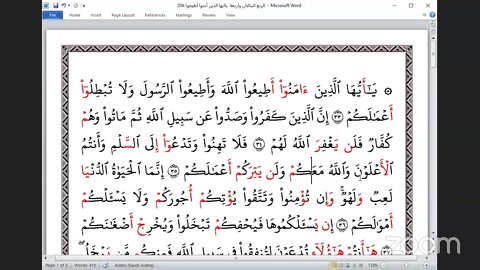 الربع المائتان وأربعة -يائيها الذين آمنوا أطيعوا-204 - Microsoft Word
File Home Insert Page Layout References Mailings Review View
۞ يَـٰٓأَيُّهَا ٱلَّذِينَ ءَامَنُوٓا۟ أَطِيعُوا۟ ٱللَّهَ وَأَطِيعُوا۟ ٱلرَّسُولَ وَلَا تُبْطِلُوٓا۟
أَعْمَـٰلَكُمْ ٣٣ إِنَّ ٱلَّذِينَ كَفَرُوا۟ وَصَدُّوا۟ عَن سَبِيلِ ٱللَّهِ ثُمَّ مَاتُوا۟ وَهُمْ
كُفَّارٌ فَلَن يَغْفِرَ ٱللَّهُ لَهُمْ ٣٤ فَلَا تَهِنُوا۟ وَتَدْعُوٓا۟ إِلَى ٱلسَّلْمِ وَأَنتُمُ
ٱلْأَعْلَوْنَ وَٱللَّهُ مَعَكُمْ وَلَن يَتِرَكُمْ أَعْمَـٰلَكُمْ ٣٥ إِنَّمَا ٱلْحَيَوٰةُ ٱلدُّنْيَا
لَعِبٌ وَلَهْوٌ ۚ وَإِن تُؤْمِنُوا۟ وَتَتَّقُوا۟ يُؤْتِكُمْ أُجُورَكُمْ وَلَا يَسْـَٔلْكُمْ
أَمْوَٰلَكُمْ ٣٦ إِن يَسْـَٔلْكُمُوهَا فَيُحْفِكُمْ تَبْخَلُوا۟ وَيُخْرِجْ أَضْغَـٰنَكُمْ
٣٧ هَـٰٓأَنتُمْ هَـٰٓؤُلَآءِ تُدْعَوْنَ لِتُنفِقُوا۟ فِى سَبِيلِ ٱللَّهِ فَمِنكُم مَّن يَبْخَلُ
Page: 1 of 3 Words: 415 Arabic (Saudi Arabia) 130%
zoom